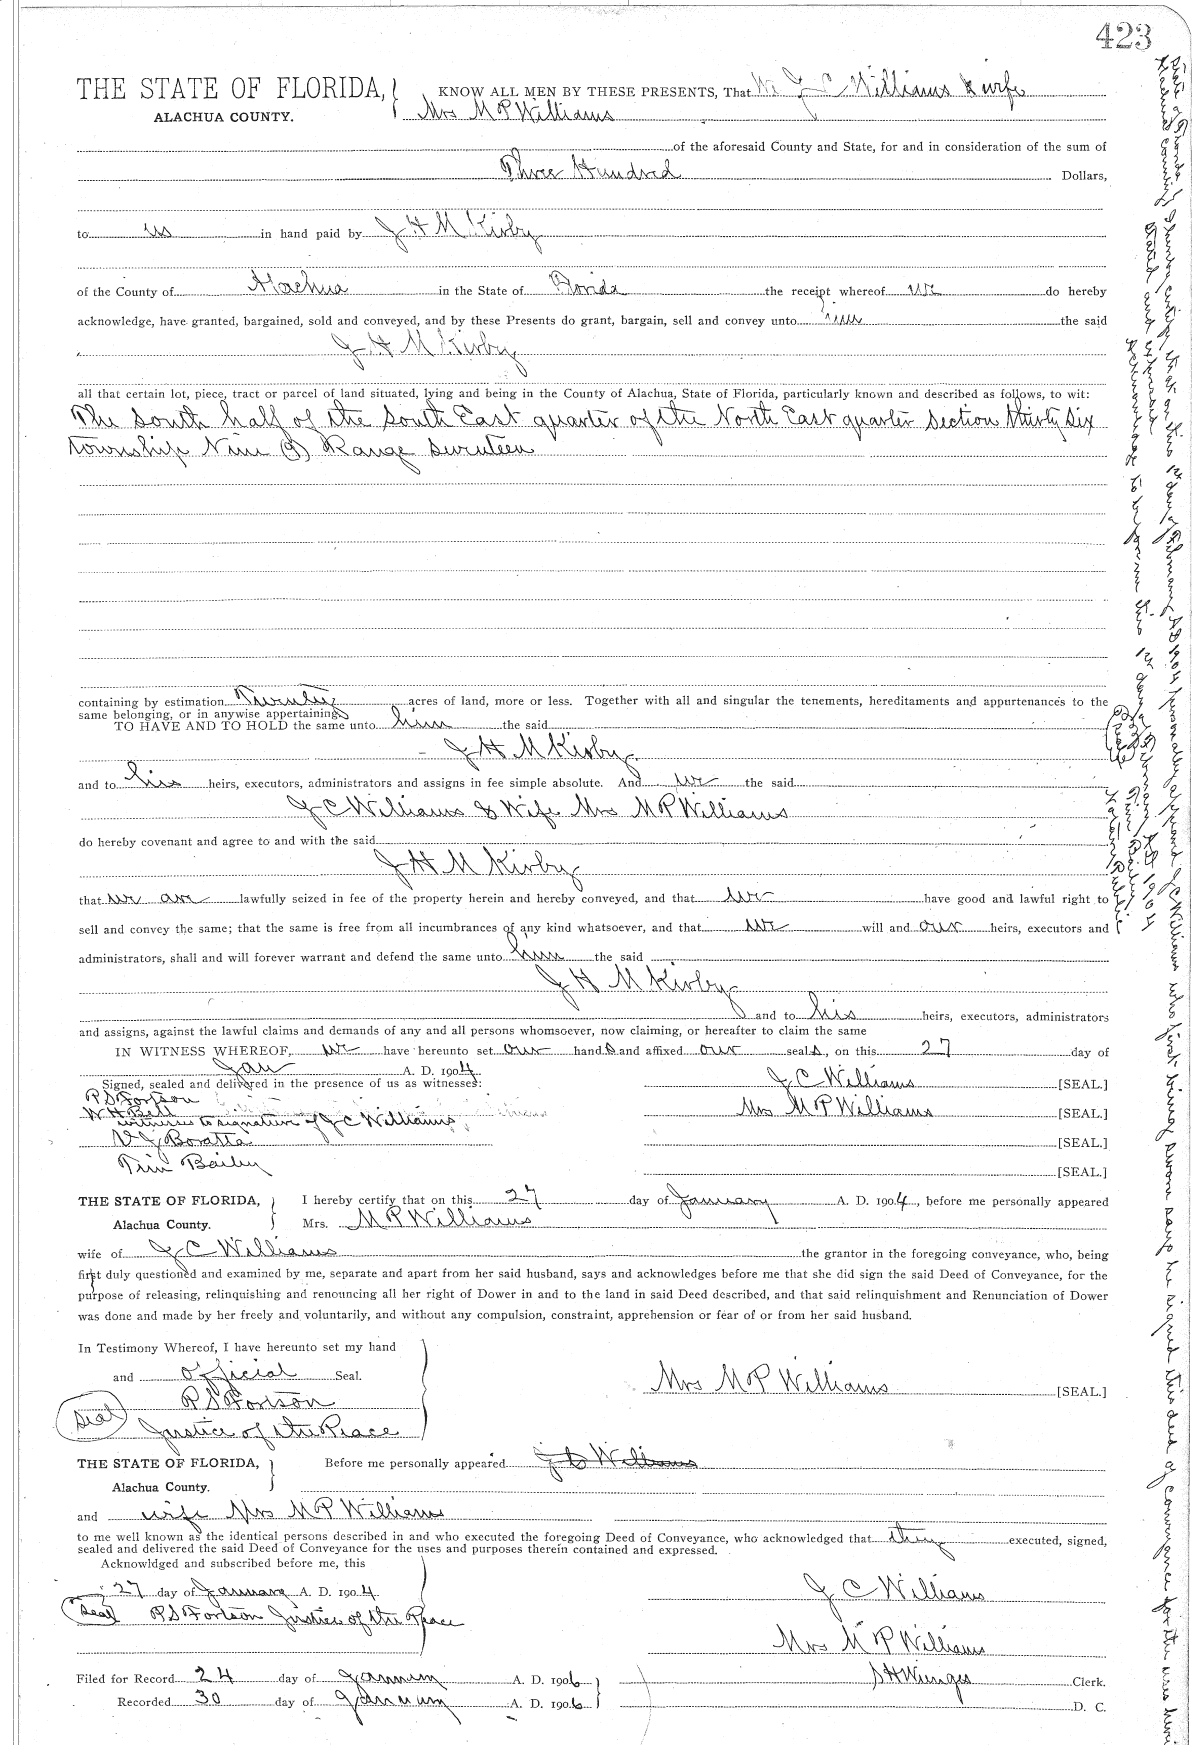 423
THE STATE OF FLORIDA, KNOW ALL MEN BY THESE PRESENTS, That We J C Williams & wife
ALACHUA COUNTY. Mrs M P Williams
of the aforesaid County and State, for and in consideration of the sum of
Three Hundred Dollars,
to us in hand paid by J H M Kirby
of the County of Alachua in the State of Florida the receipt whereof we do hereby
acknowledge, have granted, bargained, sold and conveyed, and by these Presents do grant, bargain, sell and convey unto him the said
J H M Kirby
all that certain lot, piece, tract or parcel of land situated, lying and being in the County of Alachua, State of Florida, particularly known and described as follows, to wit:
The South half of the South East quarter of the North East quarter section thirty six
township Nine (9) Range seventeen
containing by estimation Twenty acres of land, more or less. Together with all and singular the tenements, hereditaments and appurtenances to the
same belonging, or in anywise appertaining
TO HAVE AND TO HOLD the same unto him the said
J H M Kirby
and to his heirs, executors, administrators and assigns in fee simple absolute. And we the said
J C Williams & Wife Mrs M P Williams
do hereby covenant and agree to and with the said
J H M Kirby
that we are lawfully seized in fee of the property herein and hereby conveyed, and that we have good and lawful right to
sell and convey the same; that the same is free from all incumbrances of any kind whatsoever, and that we will and our heirs, executors and
administrators, shall and will forever warrant and defend the same unto him the said
J H M Kirby
and to his heirs, executors, administrators
and assigns, against the lawful claims and demands of any and all persons whomsoever, now claiming, or hereafter to claim the same
IN WITNESS WHEREOF, we have hereunto set our hands and affixed our seals, on this 27 day of
Jan A. D. 1904
Signed, sealed and delivered in the presence of us as witnesses: J C Williams [SEAL.]
P S Fortson
W H Bell Mrs M P Williams [SEAL.]
witnesses to signature of J C Williams
V J Boratta [SEAL.]
Tim Bailey [SEAL.]
THE STATE OF FLORIDA, I hereby certify that on this 27 day of January A. D. 1904, before me personally appeared
Alachua County. Mrs. M P Williams
wife of J C Williams the grantor in the foregoing conveyance, who, being
first duly questioned and examined by me, separate and apart from her said husband, says and acknowledges before me that she did sign the said Deed of Conveyance, for the
purpose of releasing, relinquishing and renouncing all her right of Dower in and to the land in said Deed described, and that said relinquishment and Renunciation of Dower
was done and made by her freely and voluntarily, and without any compulsion, constraint, apprehension or fear of or from her said husband.
In Testimony Whereof, I have hereunto set my hand
and official Seal. Mrs M P Williams [SEAL.]
P S Fortson
Seal Justice of the Peace
THE STATE OF FLORIDA, Before me personally appeared J C Williams
Alachua County.
and wife Mrs M P Williams
to me well known as the identical persons described in and who executed the foregoing Deed of Conveyance, who acknowledged that they executed, signed,
sealed and delivered the said Deed of Conveyance for the uses and purposes therein contained and expressed.
Acknowldged and subscribed before me, this
27 day of January A. D. 1904 J C Williams
Seal P S Fortson Justice of the Peace
Mrs M P Williams
Filed for Record 24 day of January A. D. 1906 S H Wienges Clerk.
Recorded 30 day of January A. D. 1906 D. C.
State of Florida
Alachua County I hereby certify that on this 1st day of February AD 1904 personally appeared J C Williams who first being sworn says he signed this deed of conveyance for the uses herein
stated and expressed
Acknowledge to before me this 1st day of February AD 1904
Seal Tim Bailey
Notary Public